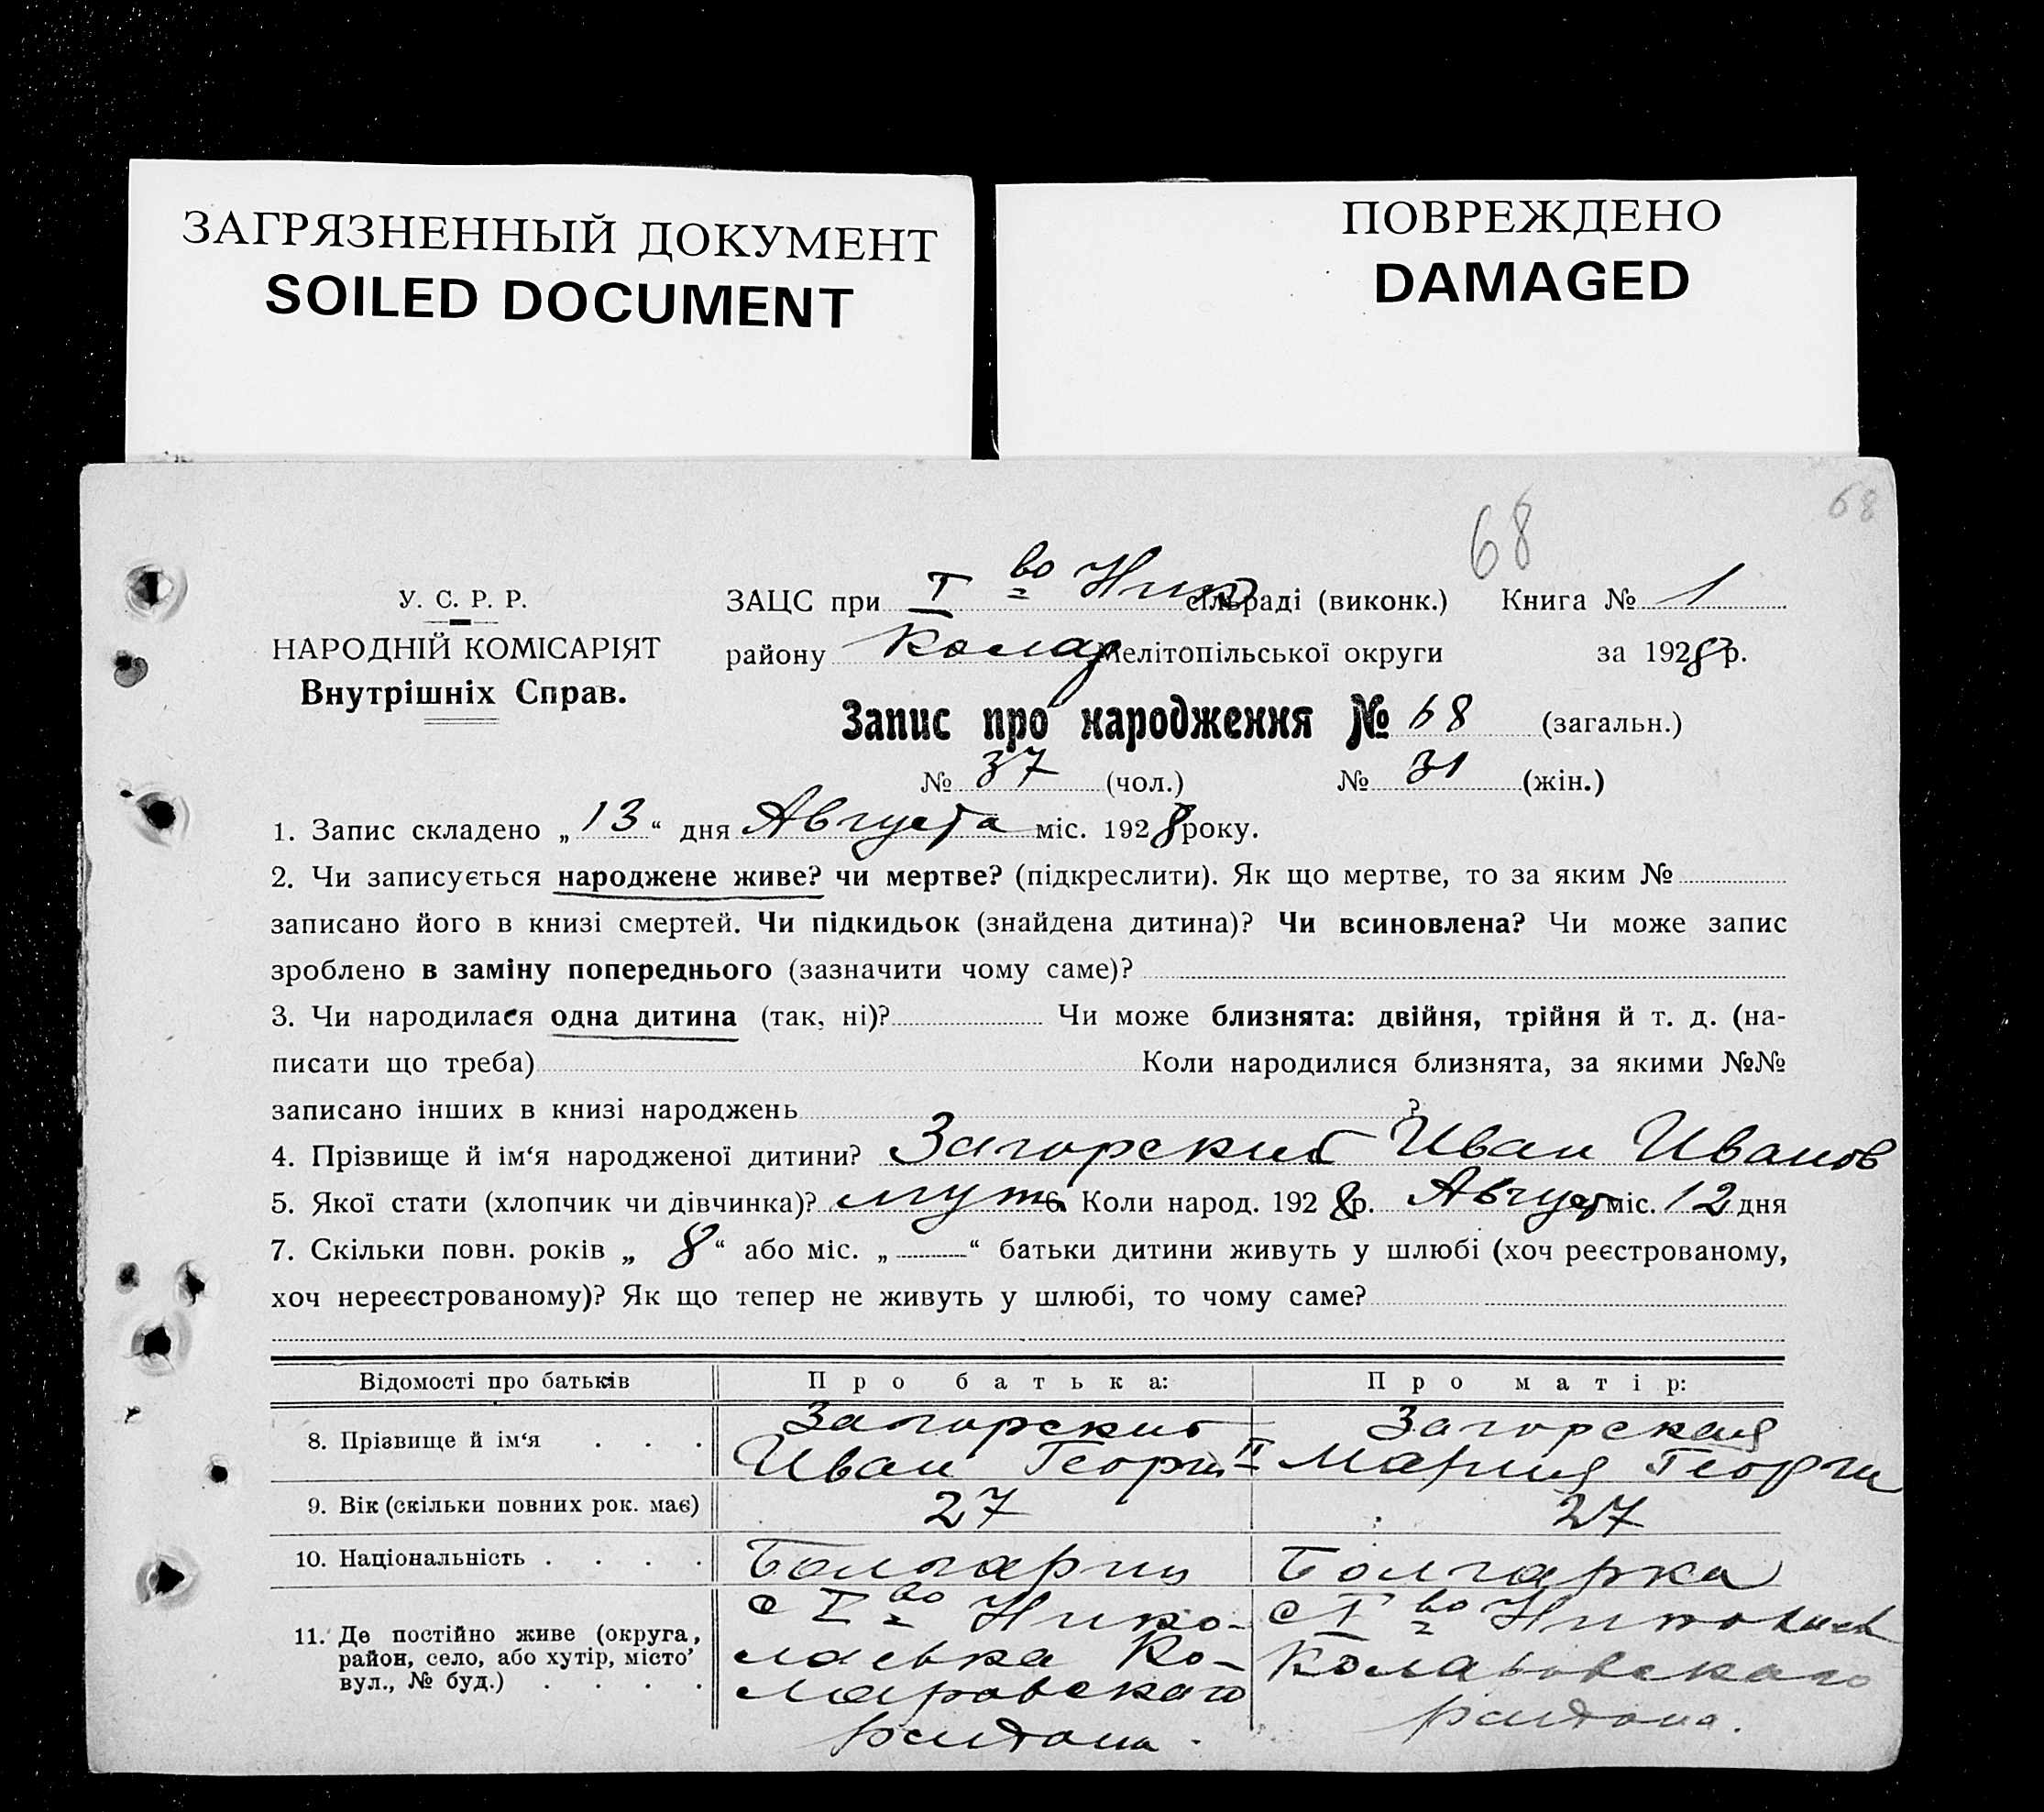 ЗАГРЯЗНЕННЫЙ ДОКУМЕНТ
SOILED DOCUMENT
ПОВРЕЖДЕНО
DAMAGED
68
68
У. С. Р. Р.
НАРОДНІЙ КОМІСАРІЯТ
Внутрішніх Справ.
ЗАЦС при I во Ник сільраді (виконк.) Книга № 1
району Колар Мелітопільської округи за 1928 р.
Запис про народження № 68 (загальн.)
№ 37 (чол.) № 31 (жін.)
1. Запис складено „13“ дня Августа міс. 1928 року.
2. Чи записується народжене живе? чи мертве? (підкреслити). Як що мертве, то за яким №
записано його в книзі смертей. Чи підкидьок (знайдена дитина)? Чи всиновлена? Чи може запис
зроблено в заміну попереднього (зазначити чому саме)?
3. Чи народилася одна дитина (так, ні)? Чи може близнята: двійня, трійня й т. д. (на-
писати що треба) Коли народилися близнята, за якими №№
записано інших в книзі народжень ?
4. Прізвище й ім‘я народженої дитини? Загорский Иван Иванов
5. Якої стати (хлопчик чи дівчинка)? муж 6. Коли народ. 1928 р. Август міс. 12 дня
7. Скільки повн. років „ 8 “ або міс. „ “ батьки дитини живуть у шлюбі (хоч реєстрованому,
хоч нереєстрованому)? Як що тепер не живуть у шлюбі, то чому саме?
Відомості про батьків Про батька: Про матір:
8. Прізвище й ім‘я . . . Загорский Загорская
Иван Георги II Мария Георги
9. Вік (скільки повних рок. має) 27 27
10. Національність . . . . Болгарин Болгарка
11. Де постійно живе (округа, район, село, або хутір, місто’ вул., № буд.) . . . .
с I во Нико-
лаевка Ко-
ларовскаго
района.
с I во Николаев
Коларовскаго
района.